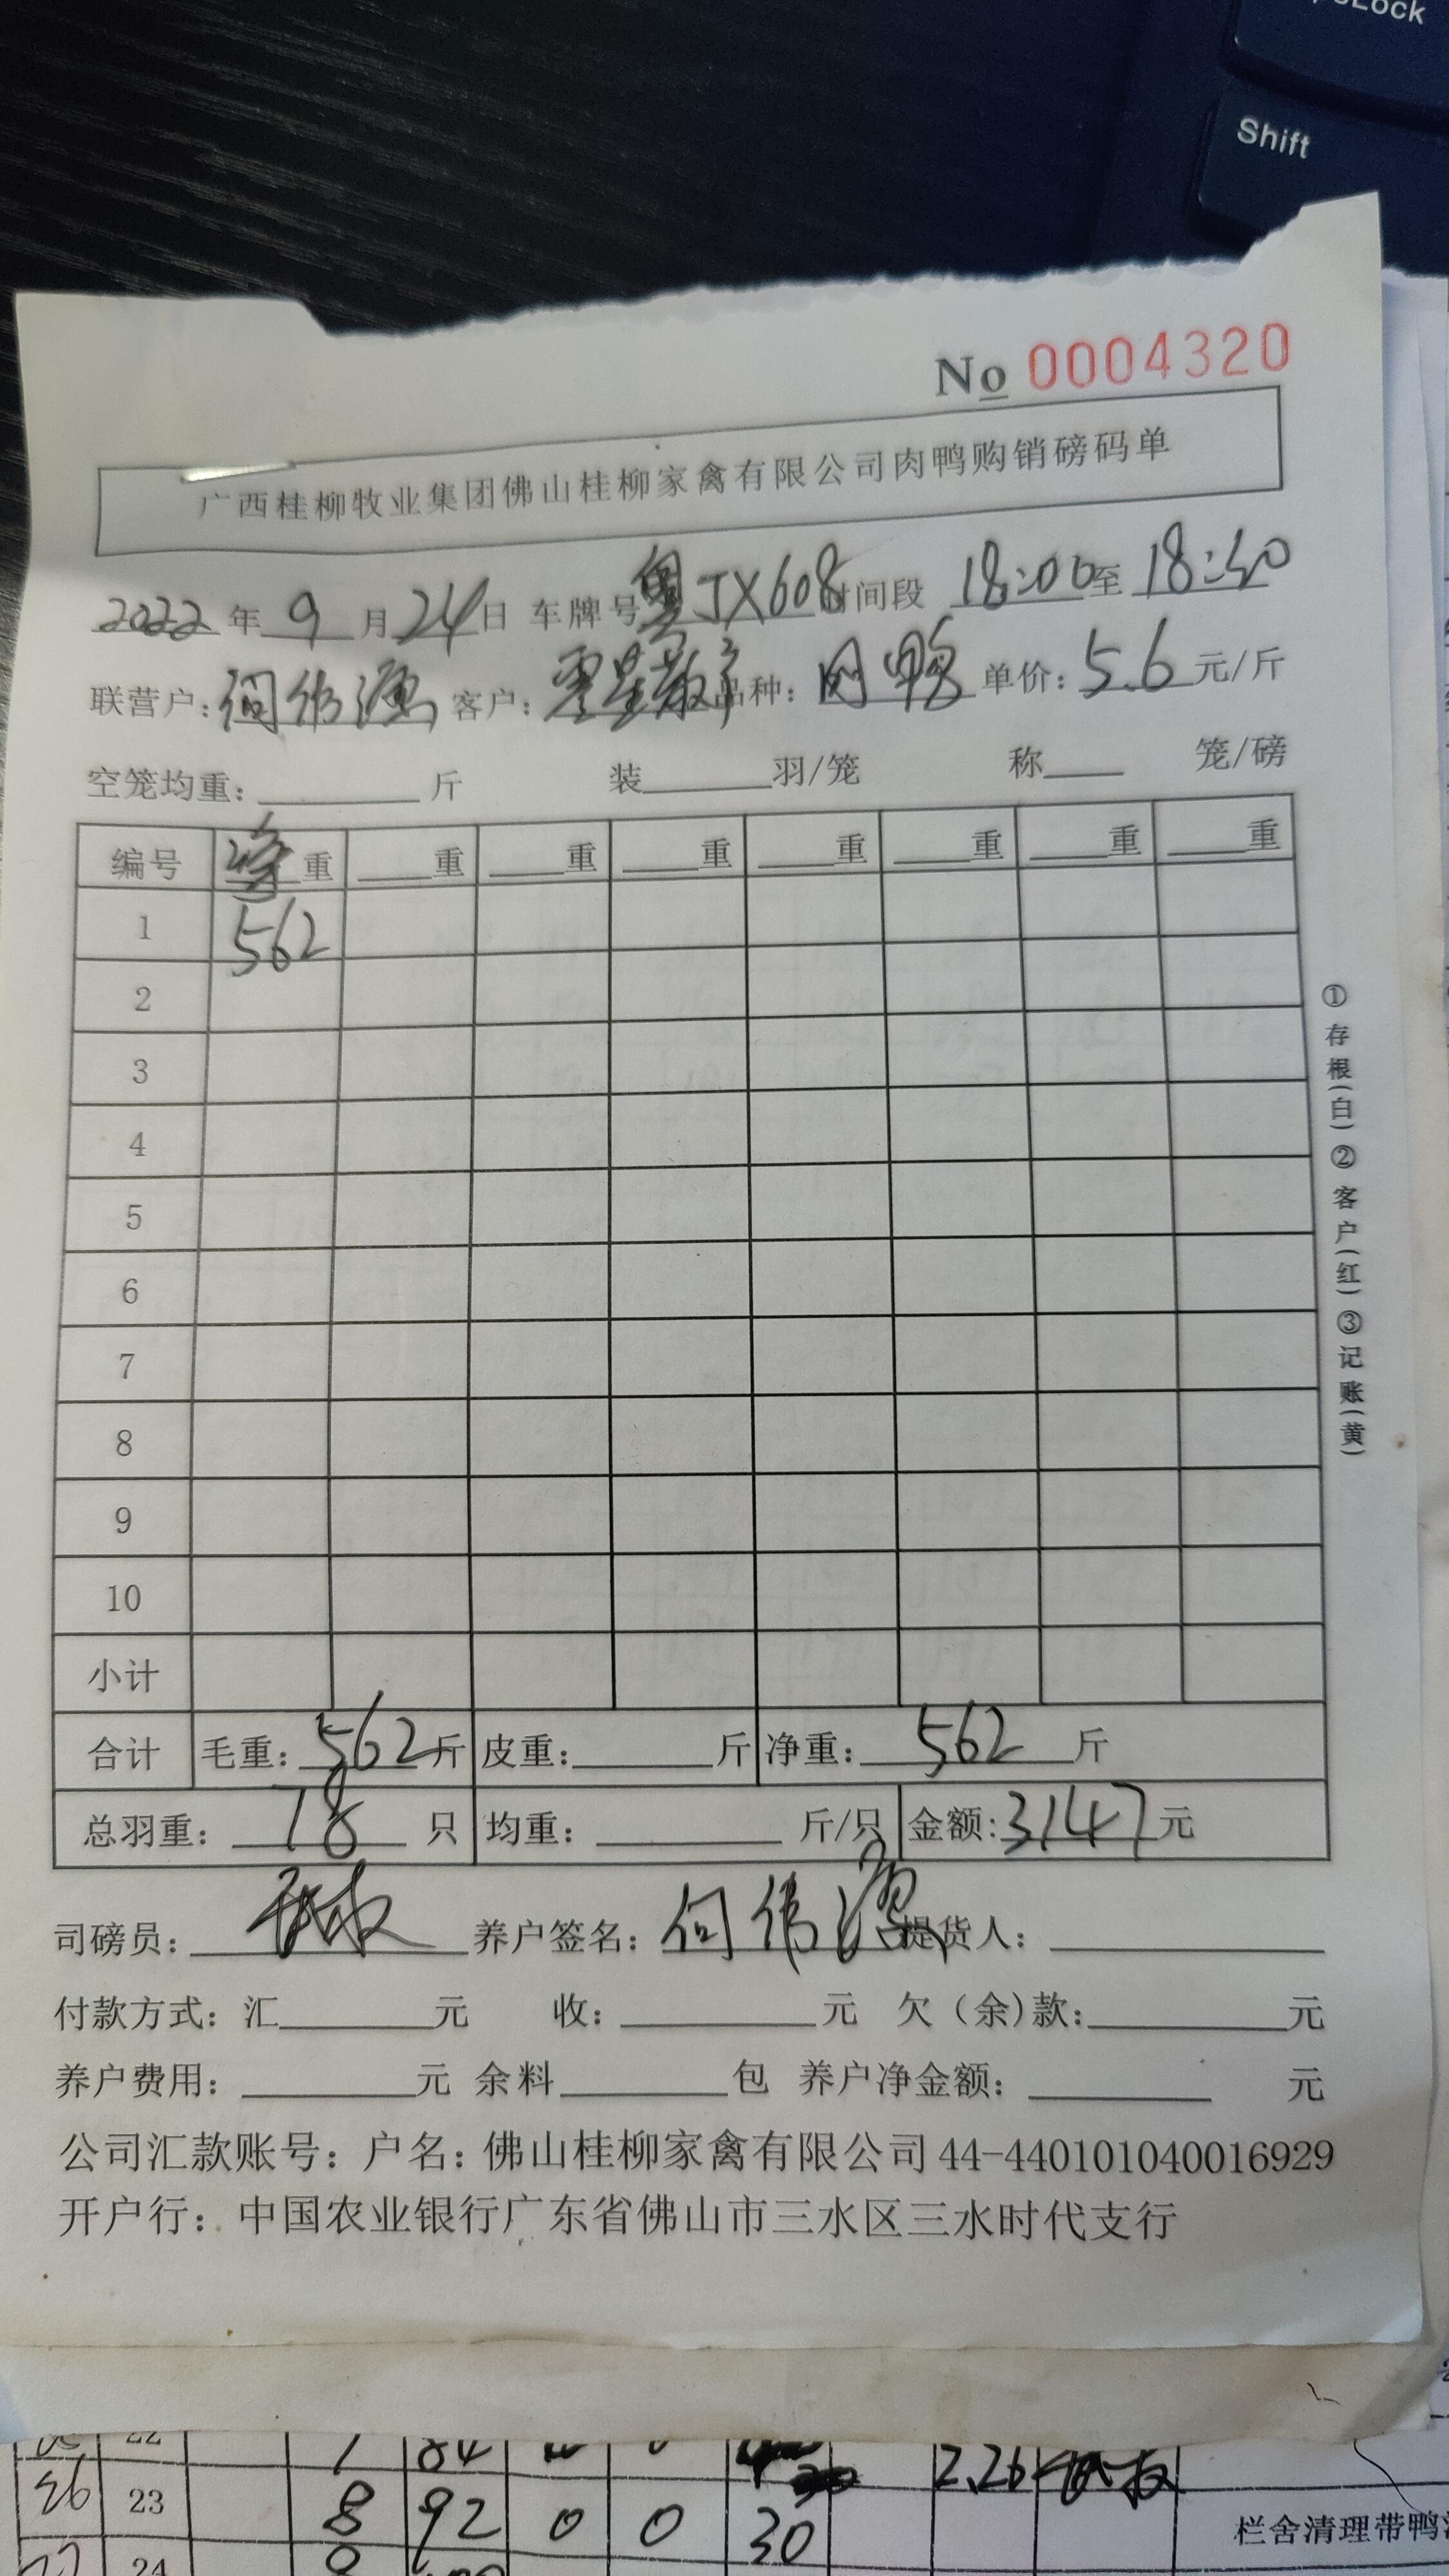 CapsLock
Shift
No 0004320
广西桂柳牧业集团佛山桂柳家禽有限公司肉鸭购销磅码单
2022 年 9 月 24 日 车牌号 粤JX608 时间段 18:00 至 18:50
联营户: 何伟源 客户: 零星散户 品种: 肉鸭 单价: 5.6 元/斤
空笼均重: 斤 装 羽/笼 称 笼/磅
编号 净重 重 重 重 重 重 重 重
1 562
2
3
4
5
6
7
8
9
10
小计
合计 毛重: 562 斤 皮重: 斤 净重: 562 斤
总羽重: 78 只 均重: 斤/只 金额: 3147 元
司磅员: 养户签名: 何伟源 提货人:
付款方式: 汇 元 收: 元 欠(余)款: 元
养户费用: 元 余料 包 养户净金额: 元
公司汇款账号: 户名: 佛山桂柳家禽有限公司 44-440101040016929
开户行: 中国农业银行广东省佛山市三水区三水时代支行
①存根(白)②客户(红)③记账(黄)
22 1 84 2.26
26 23 8 92 0 0 30 栏舍清理带鸭
24